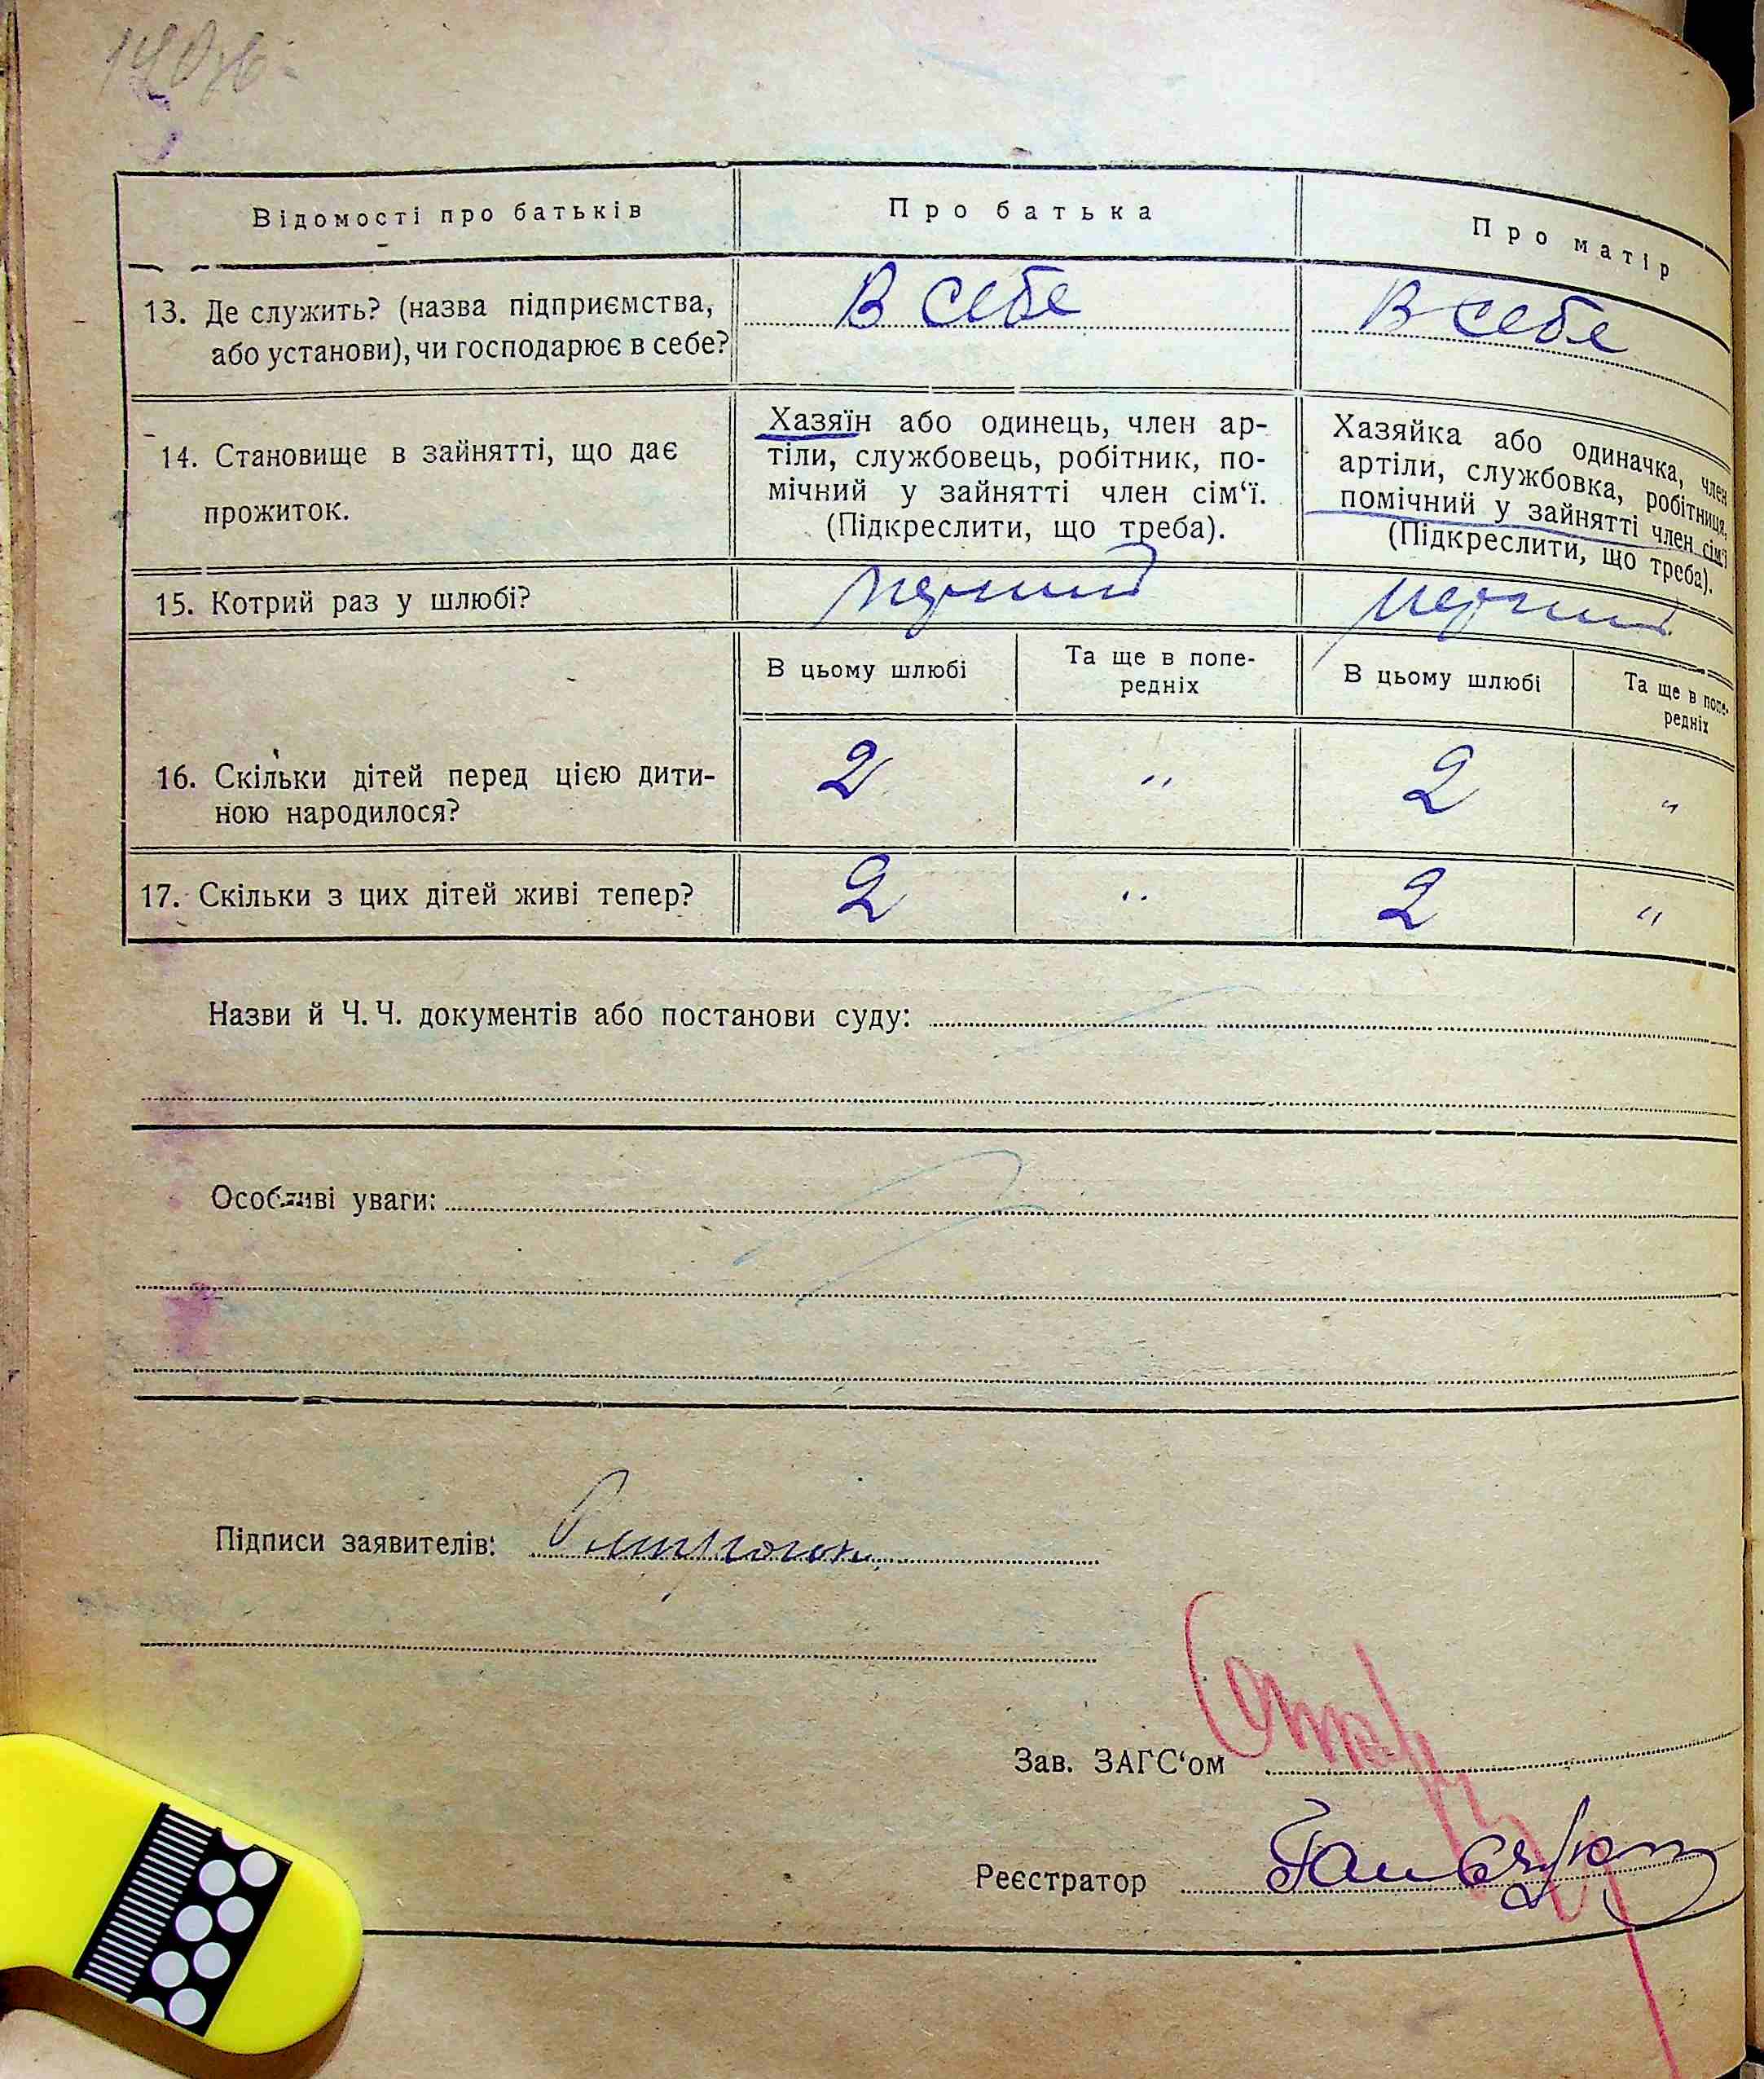 Відомості про батьків
Про батька
Про матір
13. Де служить? (назва підприємства,
або установи), чи господарює в себе?
В себе
В себе
14. Становище в зайнятті, що дає
прожиток.
Хазяїн або одинець, член ар-
тіли, службовець, робітник, по-
мічний у зайнятті член сім‘ї.
(Підкреслити, що треба).
Хазяйка або одиначка, член
артіли, службовка, робітниця,
помічний у зайнятті член сім‘ї
(Підкреслити, що треба).
15. Котрий раз у шлюбі?
перший
перший
В цьому шлюбі
Та ще в попе-
редніх
В цьому шлюбі
Та ще в попе-
редніх
16. Скільки дітей перед цією дити-
ною народилося?
2
"
2
"
17. Скільки з цих дітей живі тепер?
2
"
2
"
Назви й Ч. Ч. документів або постанови суду:
Особливі уваги:
Підписи заявителів:
Зав. ЗАГС‘ом
Реєстратор